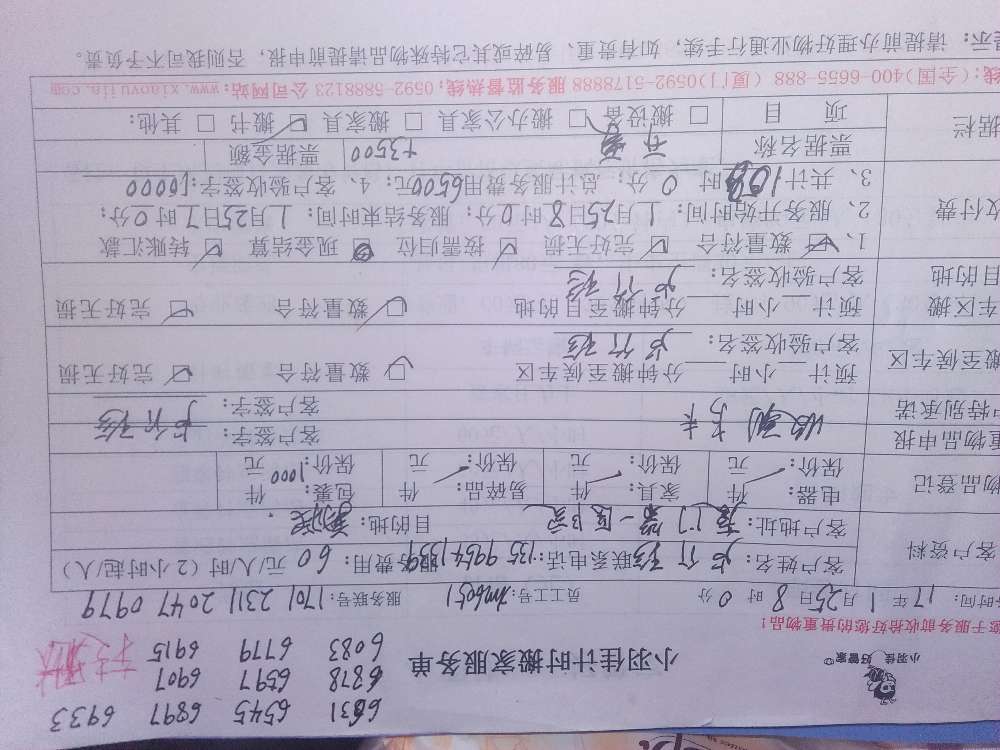 6831 6545 6897 6933
6878 6597 6907
6083 6779 6915
小羽佳 好管家
小羽佳计时搬家服务单
于服务前收拾好您的贵重物品!
时间: 17 年 1 月 25 日 8 时 0 分 员工工号: 服务联号: 1701 2311 2047 0979
客户资料
客户姓名: 联系电话: 服务费用: 60 元/人/时 (2小时起/人)
客户地址: 目的地:
物品登记
电器: 件 家具: 件 易碎品: 件 包裹: 件
保价: 元 保价: 元 保价: 元 保价: 1000 元
重物品申报 客户签字:
户特别承诺 收到 客户签字:
搬至候车区
预计 小时 分钟搬至候车区 数量符合 完好无损
客户验收签名:
车区搬
目的地
预计 小时 分钟搬至目的地 数量符合 完好无损
客户验收签名:
收付费
1、 数量符合 完好无损 按需归位 现金结算 转账汇款
2、服务开始时间: 1 月 25 日 8 时 0 分; 服务结束时间: 1 月 25 日 7 时 0 分;
3、共计 时 0 分; 总计服务费用 6500 元; 4、客户验收签字: 10000
据栏
票据名称 +3500 票据金额
项 目 搬设备 搬办公家具 搬家具 搬书 其他:
线:(全国)400-6655-888 (厦门)0592-5178888 服务监督热线:0592-5888123 公司网站:www.xiaoyujia.com
提示: 请提前办理好物业通行手续, 如有贵重、易碎或其它特殊物品请提前申报, 否则我司不予负责。